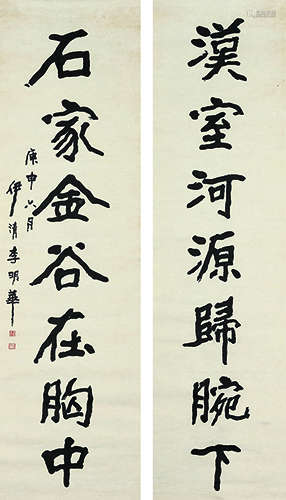 漢室河源歸腕下
石家金谷在胸中
庚申六月
伊清李明華